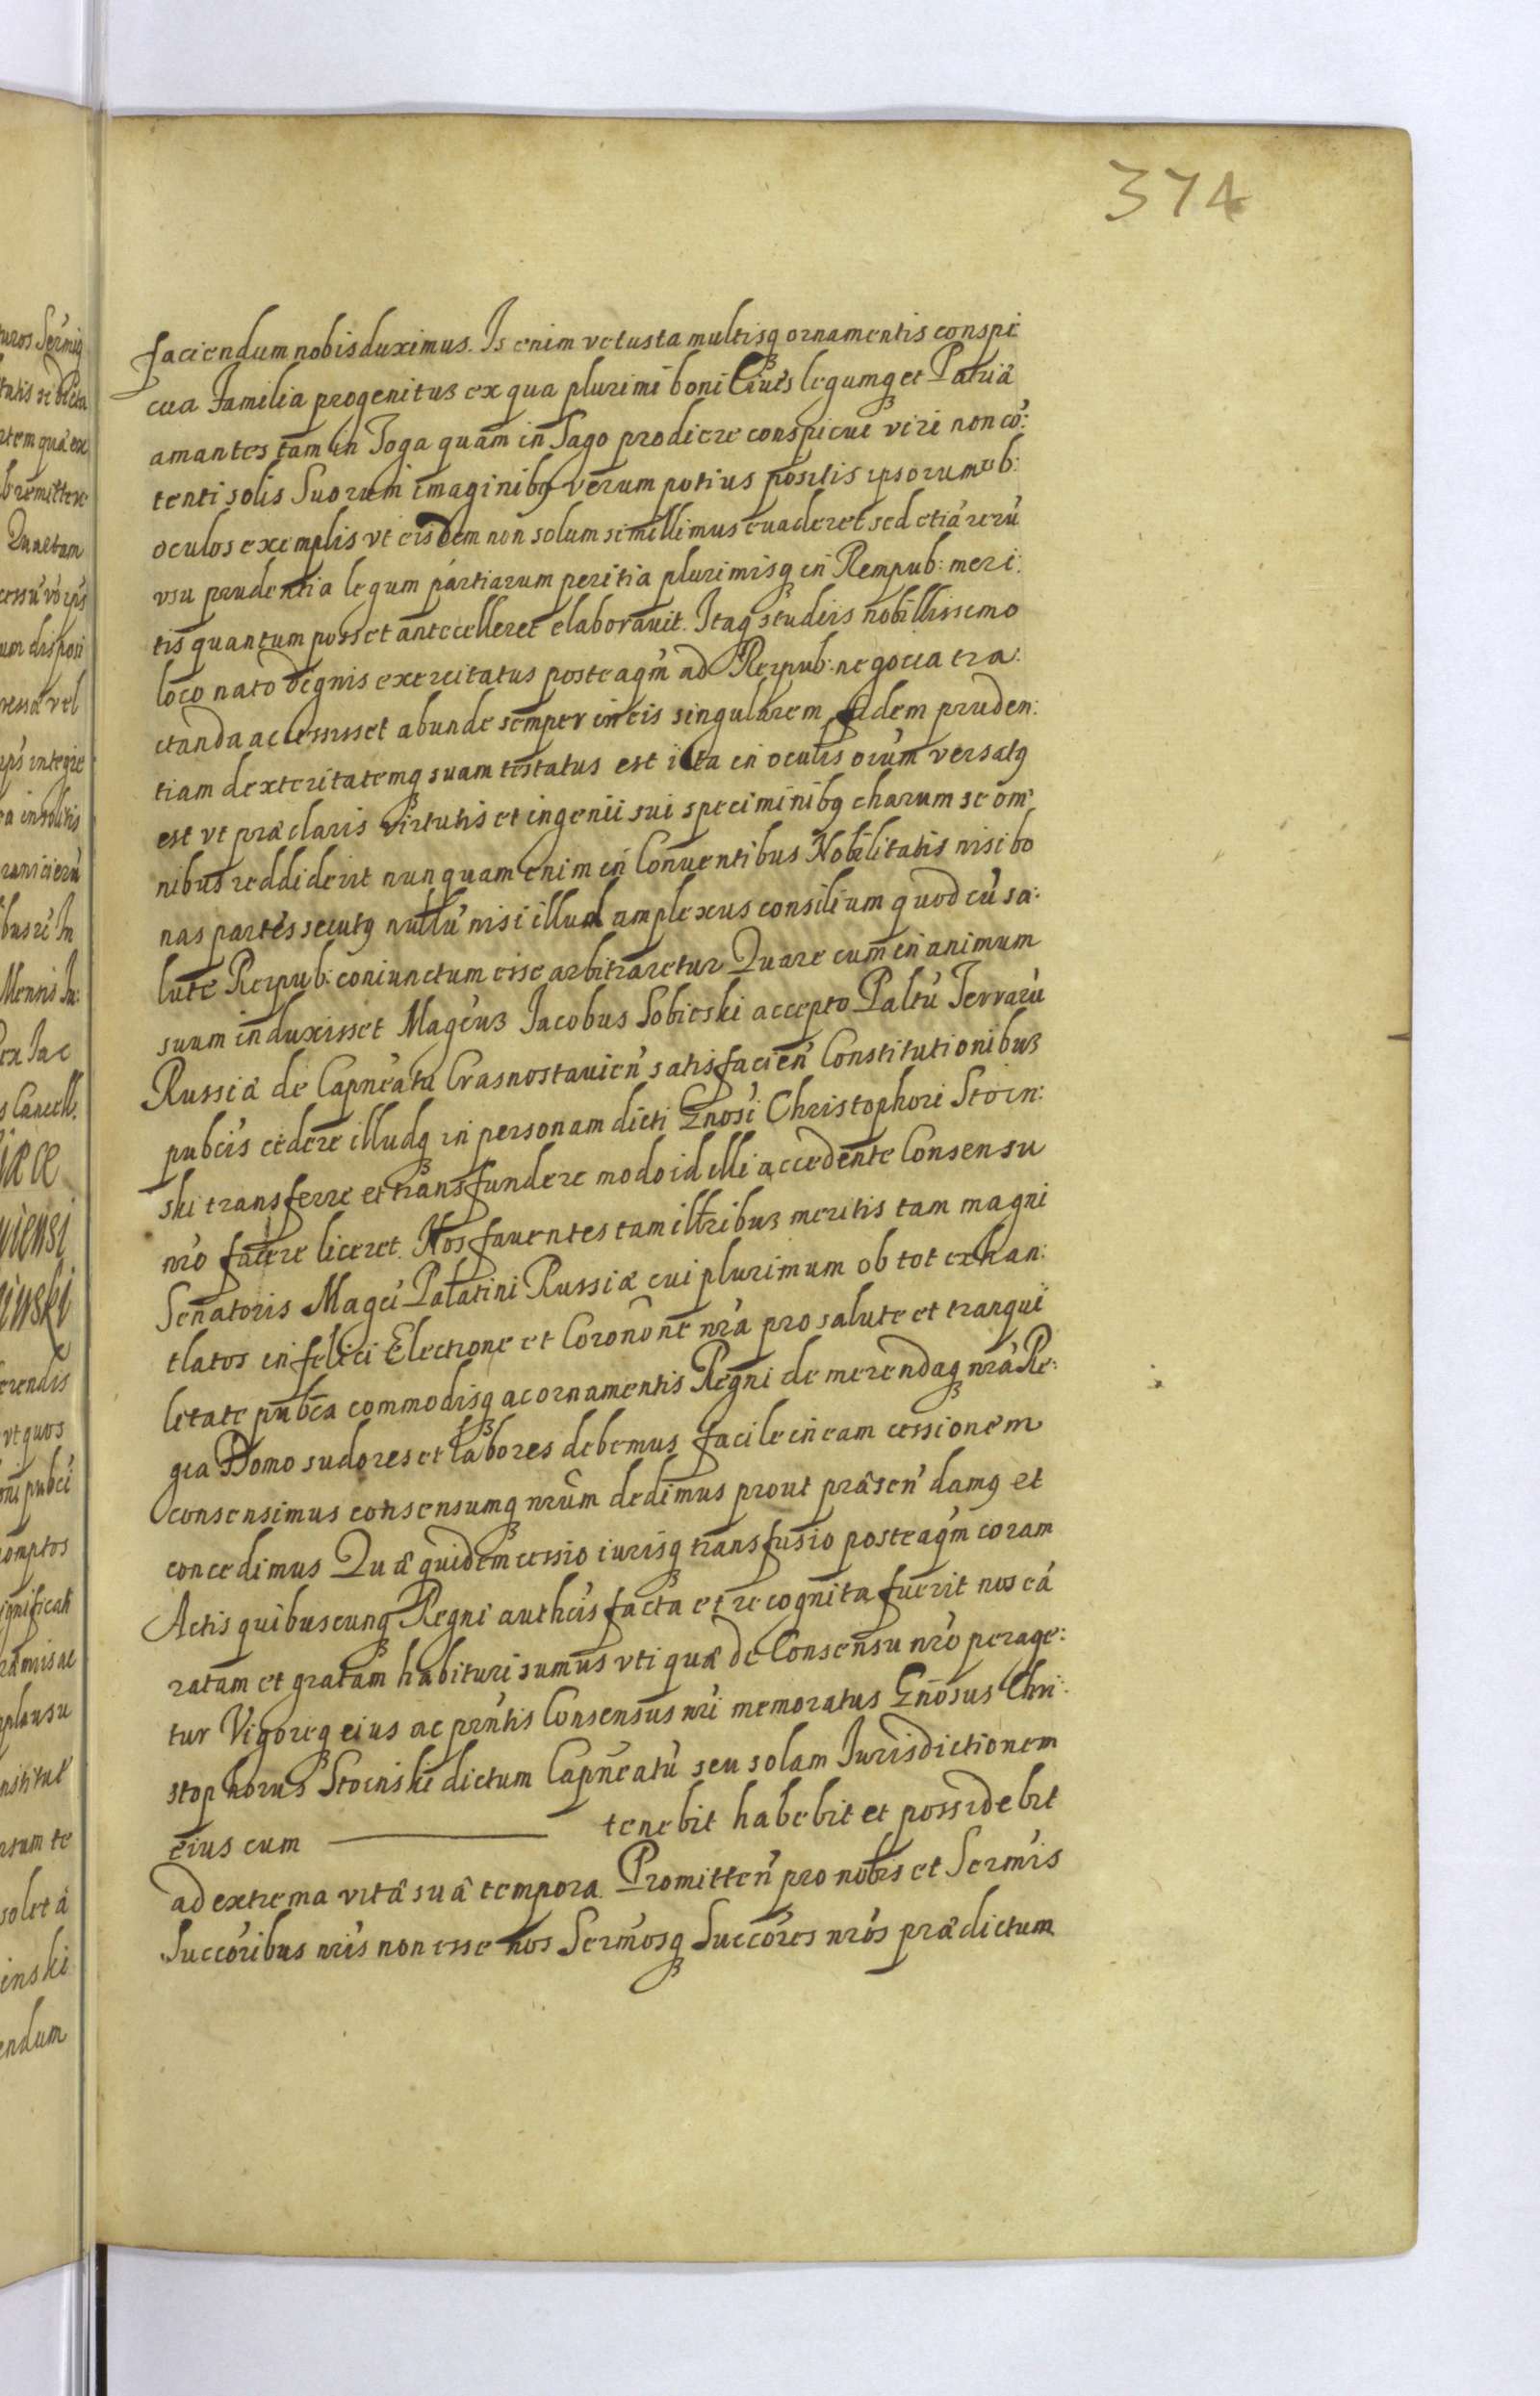 374
faciendum nobis duximus. Is enim vetusta multisq ornamentis conspi
cua Familia progenitus ex qua plurimi boni Ciues legumq et Patriæ
amantes tam in Toga quam in Sago prodiere conspicui viri non co̅:
tenti solis Suorum imaginibq verum potius positis ipsorum ob:
oculos exemplis vt eisdem non solum simillimus euaderet sed etiá rerú
vsu prudentia legum pártiarum peritia plurimisq in Rempub: meri:
tis quantum posset antecelleret elaborauit. Itaq studiis nobillissimo
loco nato dignis exercitatus posteaqm̀ ad Reipub: negocia tra:
ctanda accessisset abunde semper in eis singularem fidem pruden:
tiam dexteritatemq suam testatus est ita in oculis oiúm versatq
est vt præclaris virtutis et ingenii sui speciminibq charum se om:
nibus reddiderit nunquam enim in Conuentibus Nobilitatis nisi bo
nas partes secutq nullú nisi illud amplexus consilium quod cú sa:
lute Reipub: coniunctum esse arbitraretur Quare cum in animum
suum induxisset Magcús Iacobus Sobieski accepto Paltú Terrarú
Russiæ de Capneátu Crasnostauień satisfacień Constitutionibus
pubcis cedere illudq in personam dicti Gnosí Christophori Stoin:
ski transferre et transfundere modo id illi accedente Consensu
nró facere liceret. Nos fauentes tam illtribus meritis tam magni
Senatoris Magcí Palatini Russiæ cui plurimum ob tot exhan:
tlatos in felici Electione et Coronońe nrá pro salute et tranqui
litate pubca commodisq ac ornamentis Regni de merendaq nrá Re:
gia Domo sudores et labores debemus facile in eam cessionem
consensimus consensumq nrúm dedimus prout præseń damq et
concedimus Quæ quidem cessio iurisq transfusio posteaqm̀ coram
Actis quibuscunq Regni authcis facta et recognita fuerit nos eá
ratam et gratam habituri sumus vti quæ de Consensu nró perage:
tur Vigoreq eius ac prńtis Consensus nrí memoratus Gnosus Chri:
stophorus Stoinski dictum Capneatú seu solam Iurisdictionem
eius cum ——— tenebit habebit et possidebit
ad extrema vitæ suæ tempora. Promitteń pro nobis et Sermis
Succoribus nrís non esse nos Sermósq Succores nrós prædictum